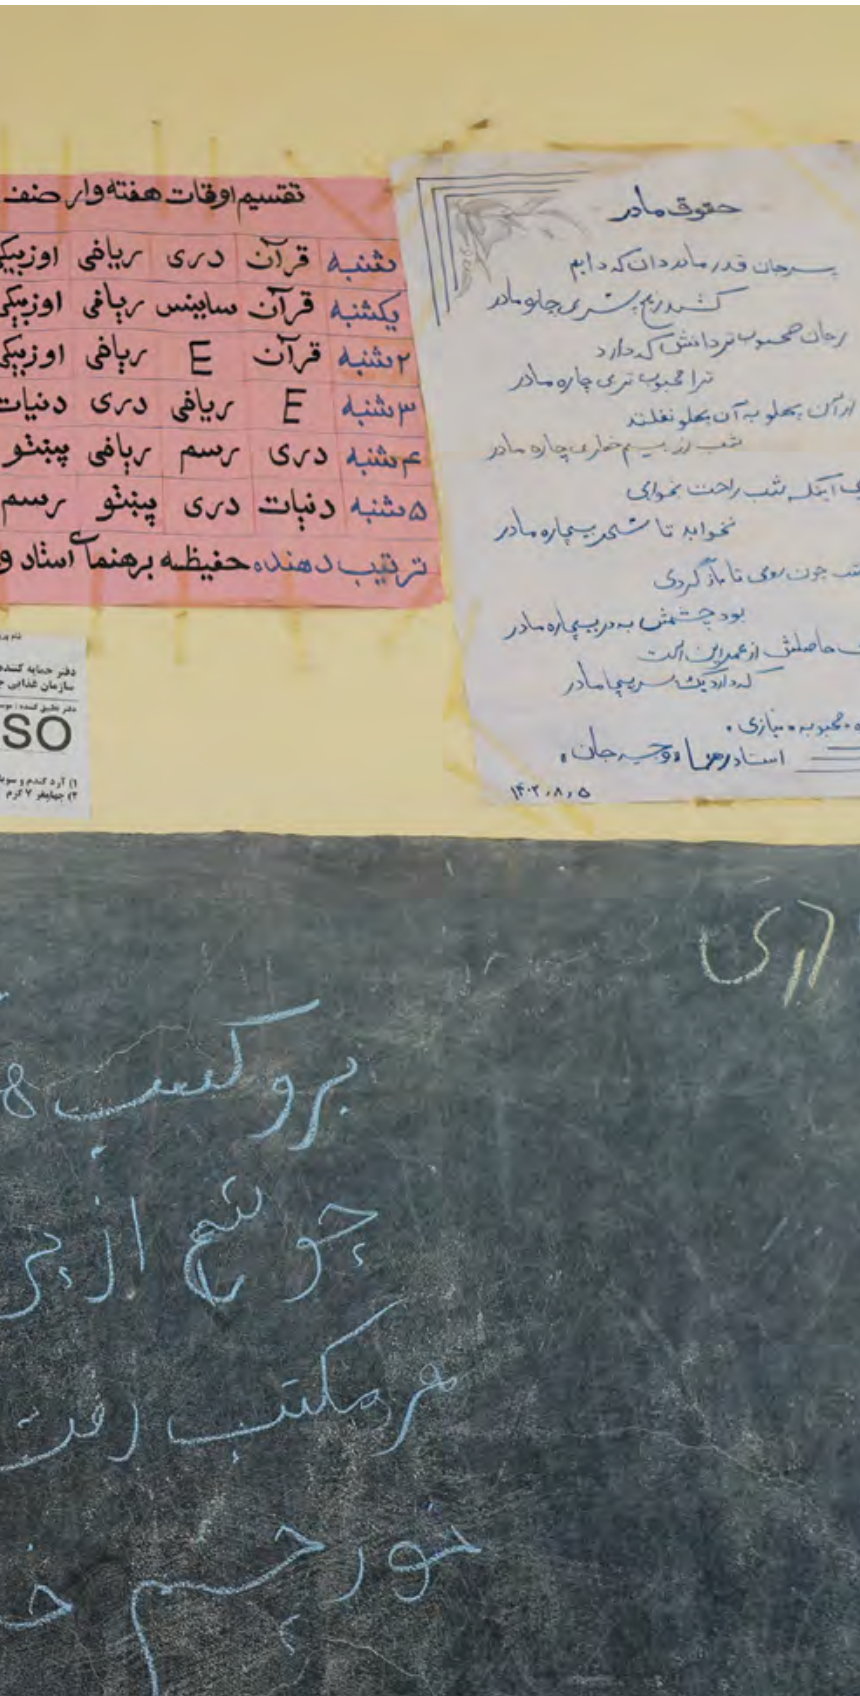 تقسیم اوقات هفته وار صنف
شنبه قرآن دری ریاضی اوزبیکی
یکشنبه قرآن ساینس ریاضی اوزبیکی
۲شنبه قرآن E ریاضی اوزبیکی
۳شنبه E ریاضی دری دنیات
۴شنبه دری رسم ریاضی پښتو
۵شنبه دنیات دری پښتو رسم
ترتیب دهنده حفیظه برهنمای استاد و
دفتر حمایه کننده
سازمان غذایی
SO
۱) آرد گندم و
۷ گرم
حقوق مادر
پسرجان قدر مادر دان که دایم
کشد رنج پسر بیچاره مادر
محبوب تر دانش که دارد
ترا محبوب تر بیچاره مادر
از آن پهلو به آن پهلو نغلتد
شب از بیم خطر بیچاره مادر
اینکه شب راحت بخوابی
نخوابد تا سحر بیچاره مادر
روی تا باز گردی
بود چشمش به در بیچاره مادر
حاصلش از عمر این است
که دارد یک پسر بیچاره مادر
محبوبه نیازی
استاد رهنما جان
۱۴۰۲،۸،۵
دری
برو کسب
چو شمع از پی
هر مکتب رفت
نور چشم